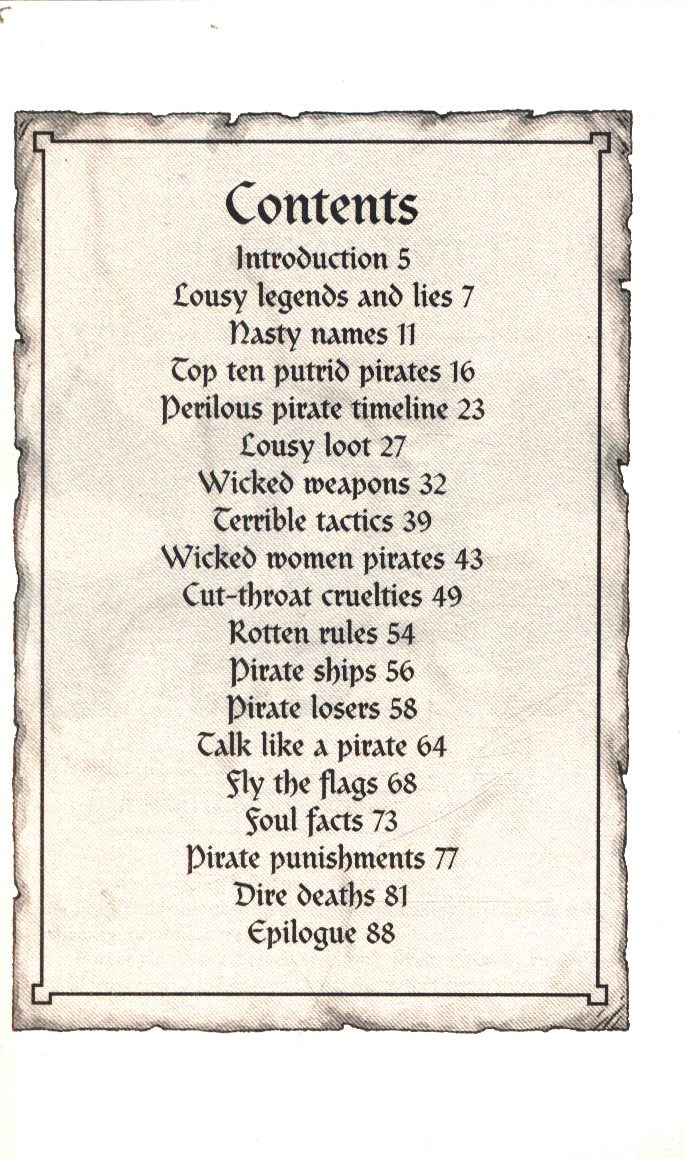 Contents
Introduction 5
Lousy legends and lies 7
Nasty names 11
Top ten putrid pirates 16
Perilous pirate timeline 23
Lousy loot 27
Wicked weapons 32
Terrible tactics 39
Wicked women pirates 43
Cut-throat cruelties 49
Rotten rules 54
Pirate ships 56
Pirate losers 58
Talk like a pirate 64
Fly the flags 68
Foul facts 73
Pirate punishments 77
Dire deaths 81
Epilogue 88